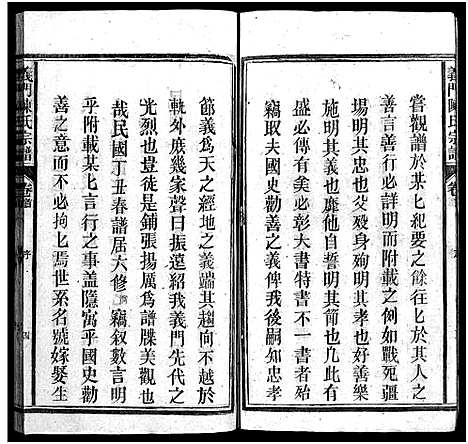 義門陳氏宗譜
卷首
嘗觀譜於某匕紀要之餘往匕於其人之
善言善行必詳明而附載之例如戰死疆
場明其忠也孝養父母明其孝也好善樂
施明其慷他如苦節明其節也似此不一而
盛必傳有美必彰大書特書不一書者殆
竊取夫國史勸善之義俾我後嗣知忠孝
節義爲天之經地之義踹其趨向不越於
軌外庶幾家聲日振遠紹我義門先代之
光烈也豈是鋪張揚厲爲譜牒美觀也
哉民國丁丑春譜屆大修竊叙數言明
乎附載某匕言行之事蓋隱寓乎國史勸
善之意不必拘匕焉世系名號嫁娶生
義門陳氏宗譜
卷首
序
四